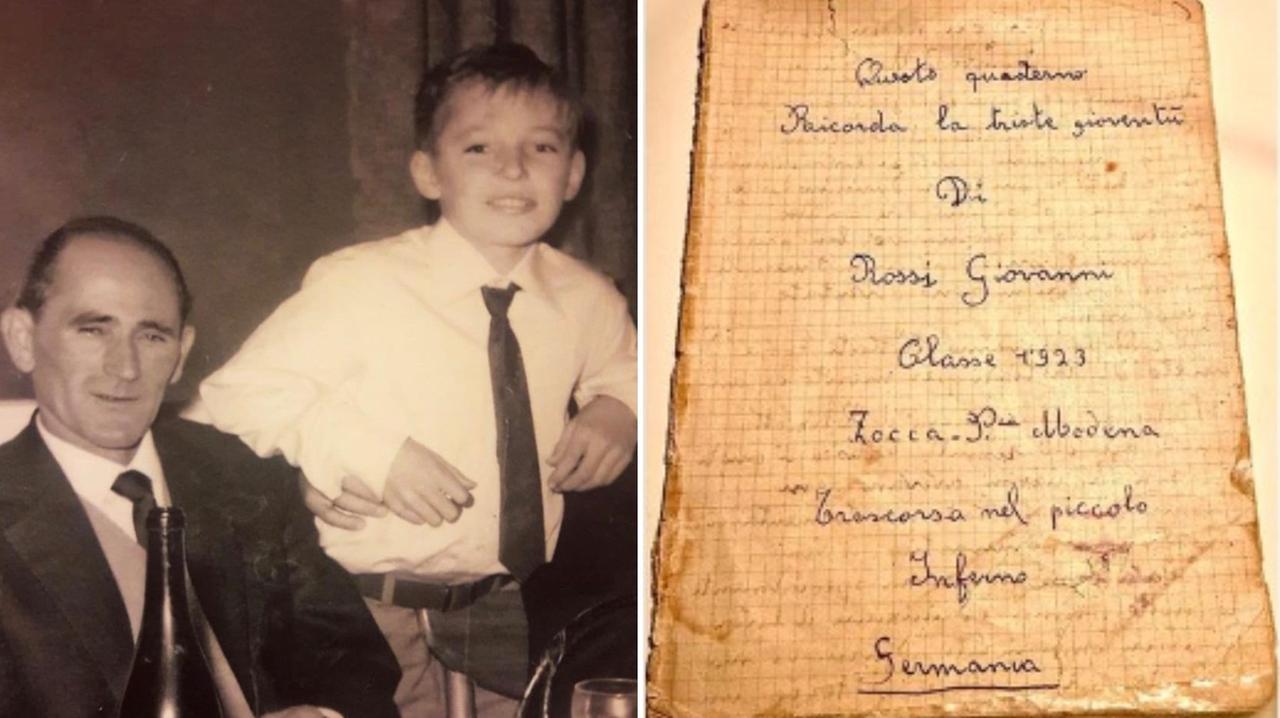 Questo quaderno
Ricorda la triste gioventù
Di
Rossi Giovanni
Classe 1923
Zocca-P.cia Modena
Trascorsa nel piccolo
Inferno
Germania